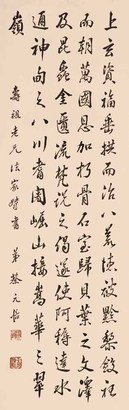 上玄資福垂拱而治八荒德被黔黎斂衽
而朝萬國恩加朽骨石室歸貝葉之文澤
及昆蟲金匱流梵說之偈遂使阿耨達水
通神甸之八川耆闍崛山接嵩華之翠
嶺
祖老兄法家 書 弟蔡元